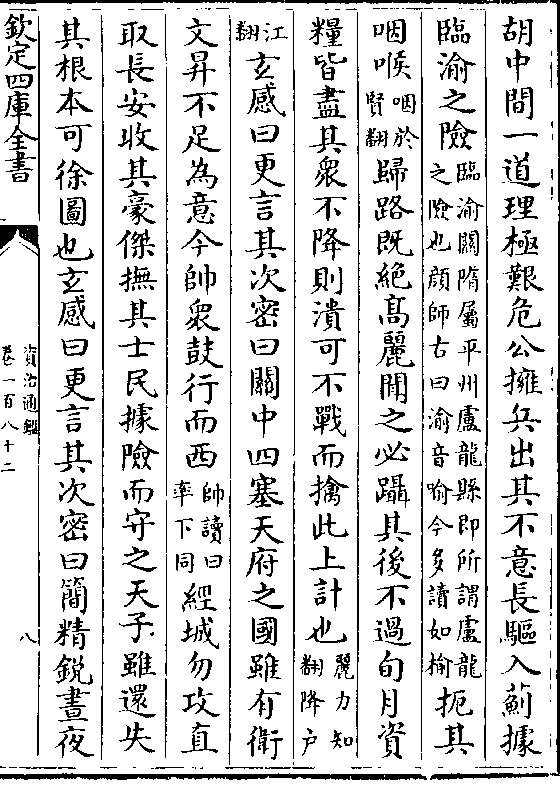 胡中間一道理極艱危公擁兵出其不意長驅入薊據
臨渝之險臨渝關隋屬平州盧龍縣即所謂盧龍之險也顔師古曰渝音喻今多讀如榆扼其
咽喉咽於賢翻歸路既絶髙麗聞之必躡其後不過旬月資
糧皆盡其衆不降則潰可不戰而擒此上計也麗力知翻降户
江翻玄感曰更言其次密曰關中四塞天府之國雖有衛
文昇不足為意今帥衆鼓行而西帥讀曰率下同經城勿攻直
取長安收其豪傑撫其士民據險而守之天子雖還失
其根本可徐圖也玄感曰更言其次密曰簡精鋭晝夜
欽定四庫全書
資治通鑑
卷一百八十二
八